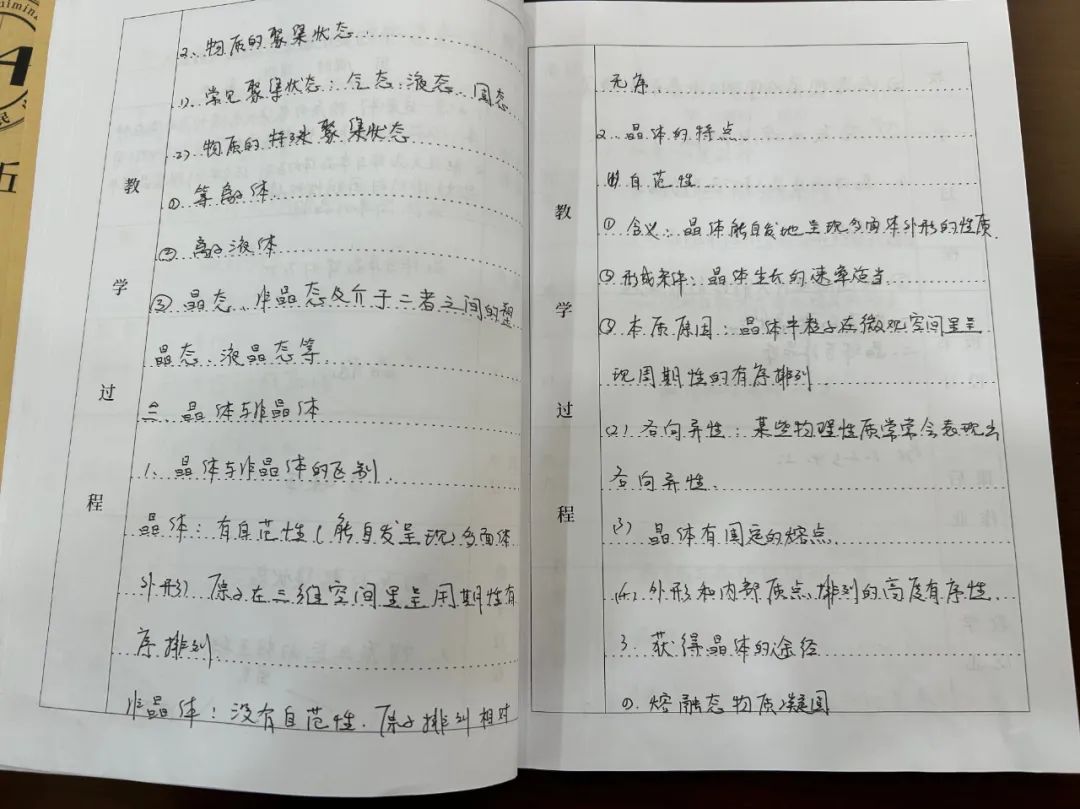 教
学
过
程
2. 物质的聚集状态
1) 常见聚集状态：气态、液态、固态
(2) 物质的特殊聚集状态
① 等离子体
② 离子液体
③ 晶态、非晶态及介于二者之间的塑
晶态、液晶态等
二 晶体与非晶体
1、晶体与非晶体的区别
晶体：有自范性（能自发呈现多面体
外形） 原子在三维空间里呈周期性有
序排列
非晶体：没有自范性、原子排列相对
教
学
过
程
无序
2. 晶体的特点
(1) 自范性
① 含义：晶体能自发地呈现多面体外形的性质
② 形成条件：晶体生长的速率适当
③ 本质原因：晶体中粒子在微观空间里呈
现周期性的有序排列
(2) 各向异性：某些物理性质常常会表现出
各向异性
(3) 晶体有固定的熔点
(4) 外形和内部质点排列的高度有序性
3. 获得晶体的途径
①. 熔融态物质凝固
五